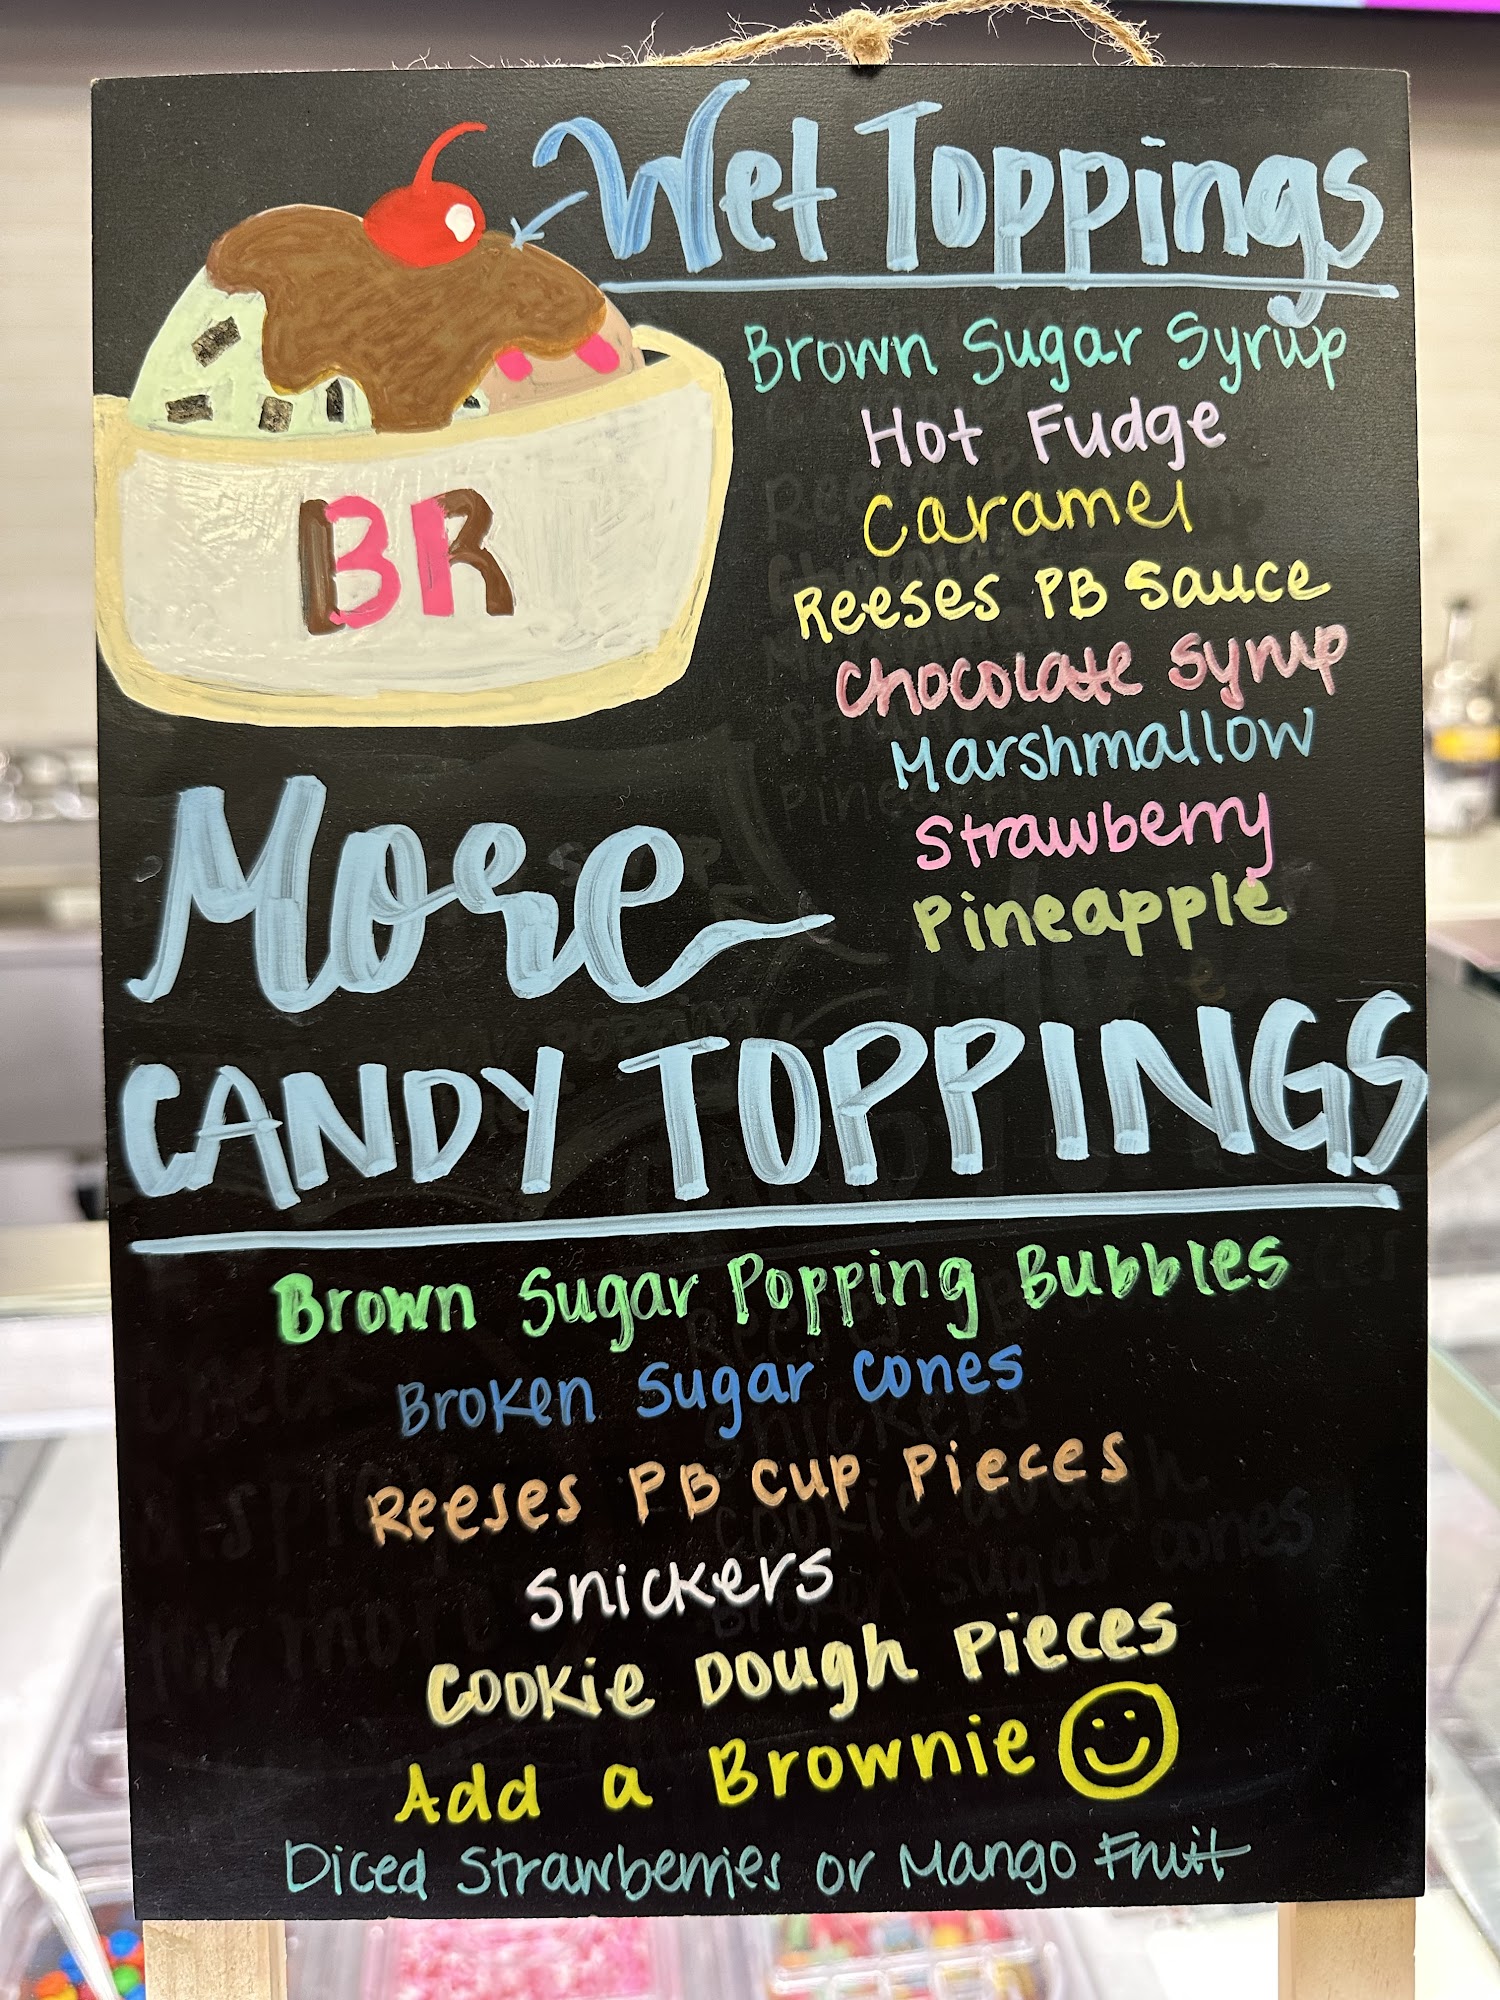 Wet Toppings
Brown Sugar Syrup
Hot Fudge
Caramel
Reeses PB Sauce
Chocolate Syrup
Marshmallow
Strawberry
Pineapple
BR
More
CANDY TOPPINGS
Brown Sugar Popping Bubbles
Broken Sugar Cones
Reeses PB Cup Pieces
Snickers
Cookie Dough Pieces
Add a Brownie
Diced Strawberries or Mango Fruit